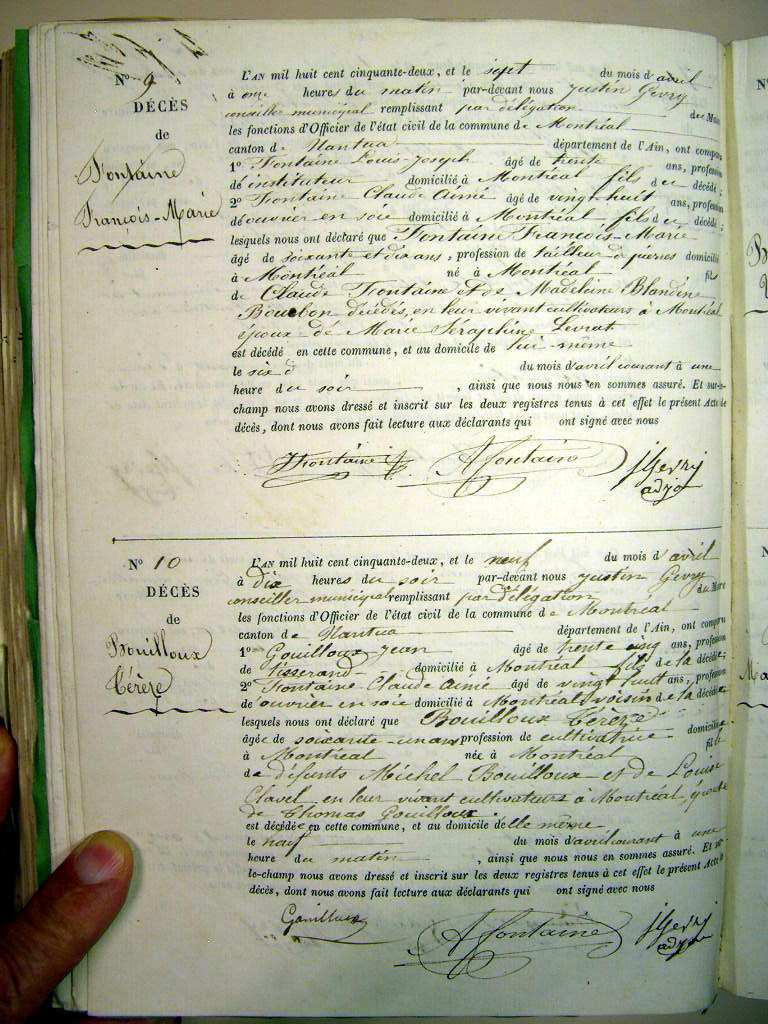 N° 9
DÉCÈS
de
Fontaine
François-Marie
L'AN mil huit cent cinquante-deux, et le sept du mois d'avril
à onze heures du matin par-devant nous Justin Gevry
conseiller municipal remplissant par délégation du Maire
les fonctions d'Officier de l'état civil de la commune de Montréal
canton de Nantua département de l'Ain, ont comparu
1° Fontaine Louis-Joseph âgé de trente ans, profession
de instituteur domicilié à Montréal fils du décédé;
2° Fontaine Claude Aimé âgé de vingt-huit ans, profession
de ouvrier en soie domicilié à Montréal fils du décédé;
lesquels nous ont déclaré que Fontaine François-Marie
âgé de soixante et dix ans, profession de tailleur de pierres domicilié
à Montréal né à Montréal fils
de Claude Fontaine et de Madeleine Blandine
Bourbon décédés, en leur vivant cultivateurs à Montréal
époux de Marie Séraphine Levrat
est décédé en cette commune, et au domicile de lui-même
le six du mois d'avril courant à une
heure du soir, ainsi que nous nous en sommes assuré. Et sur-le-
champ nous avons dressé et inscrit sur les deux registres tenus à cet effet le présent Acte de
décès, dont nous avons fait lecture aux déclarants qui ont signé avec nous
JFontaine AFontaine JGevry
adj
N° 10
DÉCÈS
de
Bouilloux
Térèze
L'AN mil huit cent cinquante-deux, et le neuf du mois d'avril
à dix heures du soir par-devant nous Justin Gevry
conseiller municipal remplissant par délégation du Maire
les fonctions d'Officier de l'état civil de la commune de Montréal
canton de Nantua département de l'Ain, ont comparu
1° Gouilloux Jean âgé de trente cinq ans, profession
de tisserand domicilié à Montréal fils de la décédée;
2° Fontaine Claude Aimé âgé de vingt huit ans, profession
de ouvrier en soie domicilié à Montréal voisin de la décédée
lesquels nous ont déclaré que Bouilloux Térèze
âgée de soixante-un ans profession de cultivatrice domiciliée
à Montréal née à Montréal fille
de défunts Michel Bouilloux et de Louise
Clavel en leur vivant cultivateurs à Montréal, épouse
de Thomas Gouilloux
est décédée en cette commune, et au domicile d'elle même
le neuf du mois d'avril courant à une
heure du matin, ainsi que nous nous en sommes assuré. Et sur
le-champ nous avons dressé et inscrit sur les deux registres tenus à cet effet le présent Acte de
décès, dont nous avons fait lecture aux déclarants qui ont signé avec nous
Gouilloux AFontaine JGevry
adj